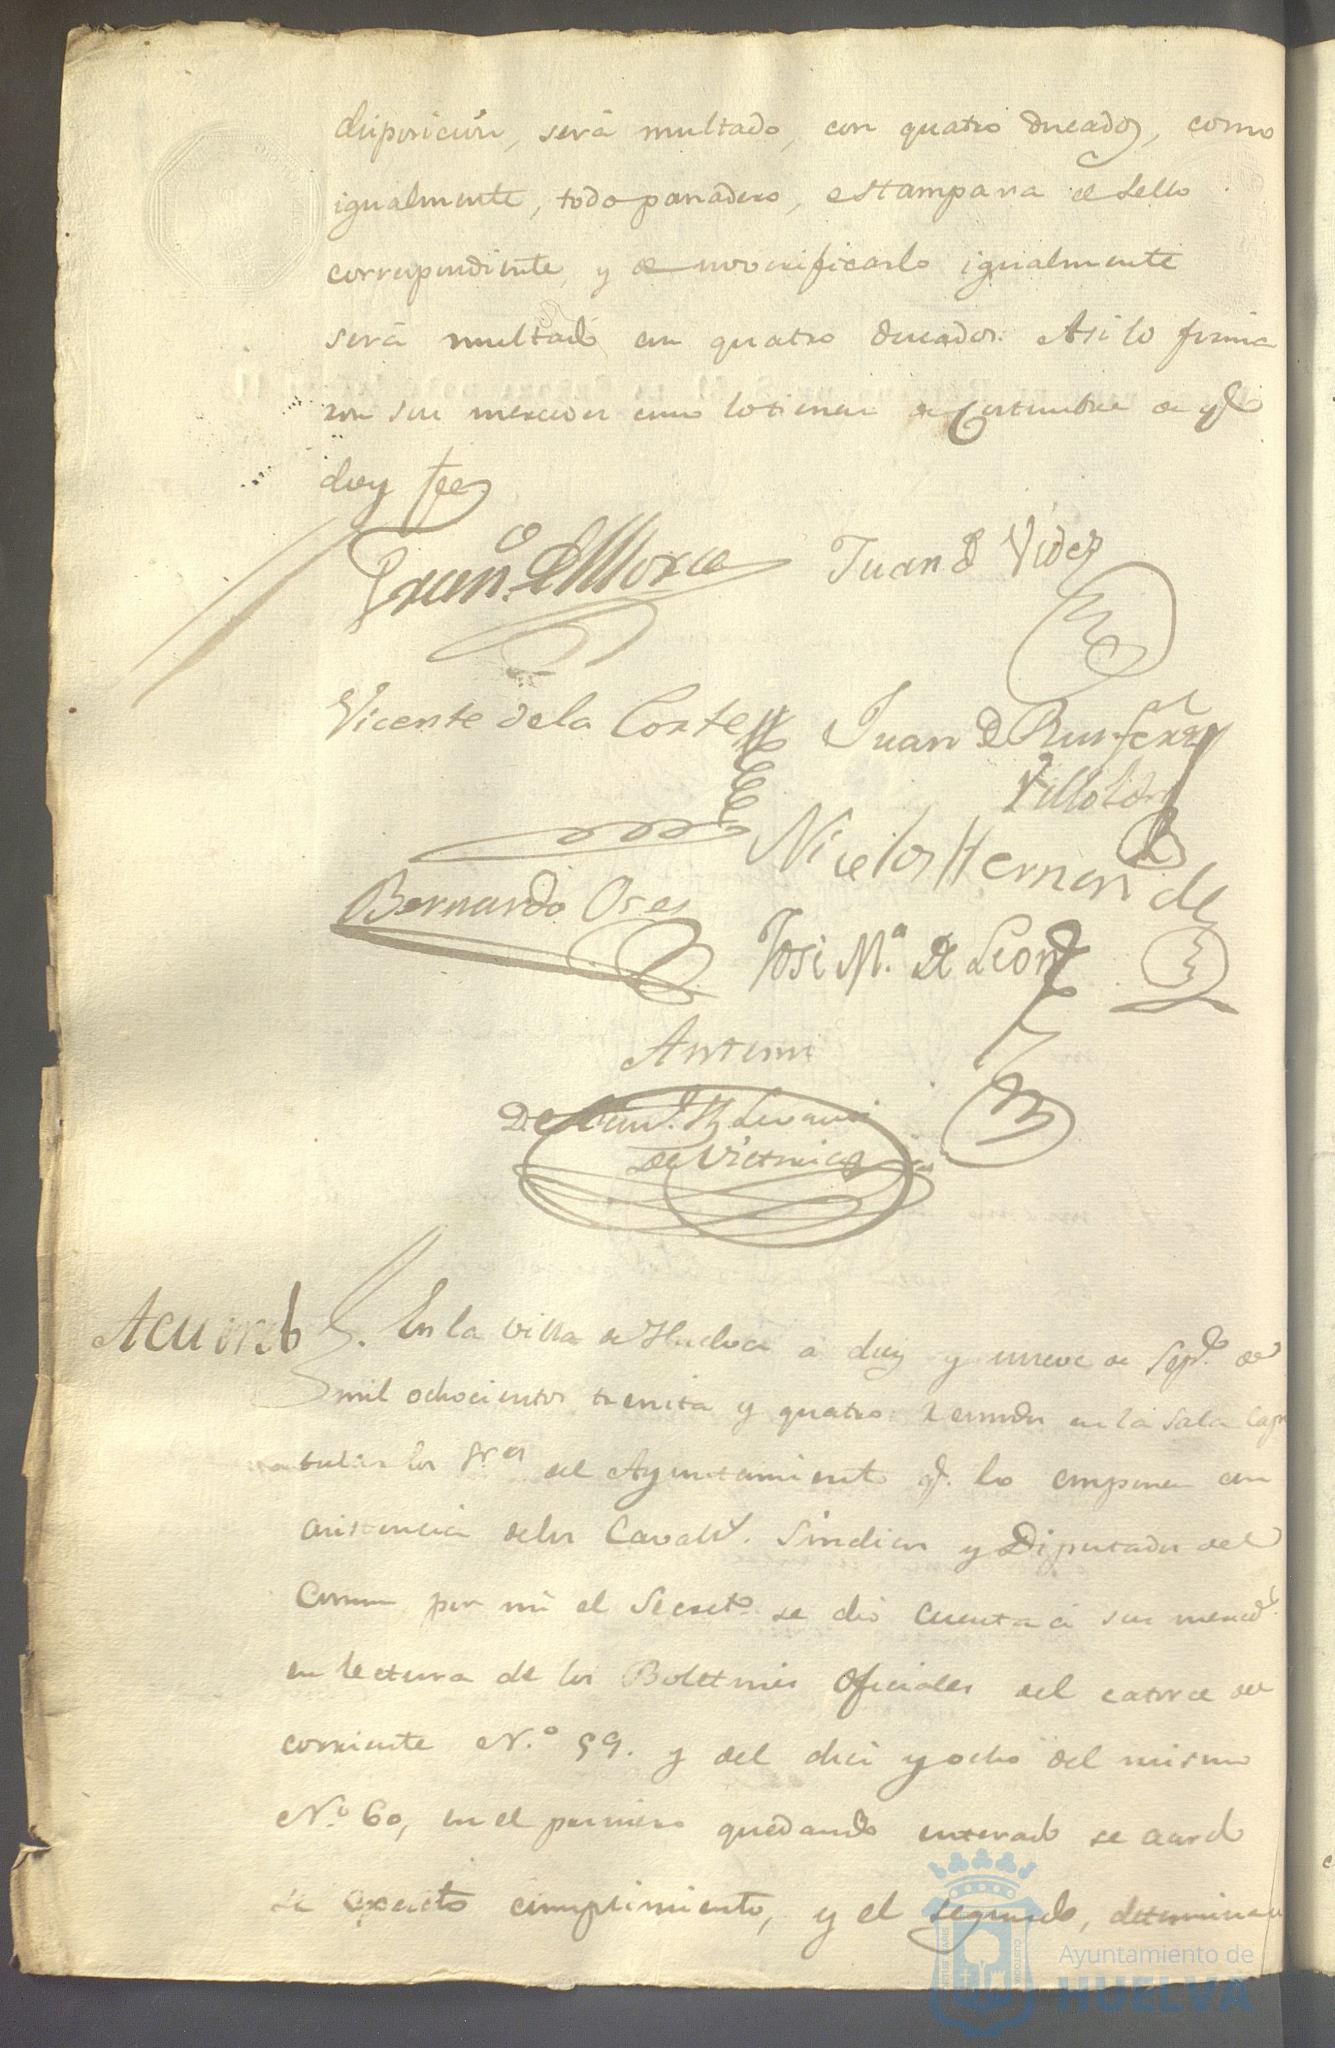 disposicion, será multado, con quatro ducados, como
igualmente, todo panadero, estampara el sello
correspondiente, y de no verificarlo igualmente
será multado en quatro ducados. Asi lo firma
ron sus mercedes como lo tienen de Costumbre de q.e
doy fee
Fran.co de Mora Juan de Vides
Vicente de la Corte Juan de Ruifern.z
Villoldo
Nicolas Hernandes
Bernardo Oses
Josi M.a de Leon
Antemi
De
de Victoria
Acuerdo En la Villa de Huelva a diez y nueve de Sep.e de
mil ochocientos treinta y quatro: Reunidos en la sala Capi
tular los S.res del Ayuntamiento q.e lo componen con
asistencia de los Cavall.s Sindicos y Diputados del
Comun por mi el Secret.o se dio cuenta á sus merced.s
en lectura de los Boletines Oficiales del catorce del
corriente N.o 59. y del diez y ocho del mismo
N.o 60, en el primero quedando enterado se acordo
se exacto cumplimiento, y el segundo, determinan
Ayuntamiento de
HUELVA